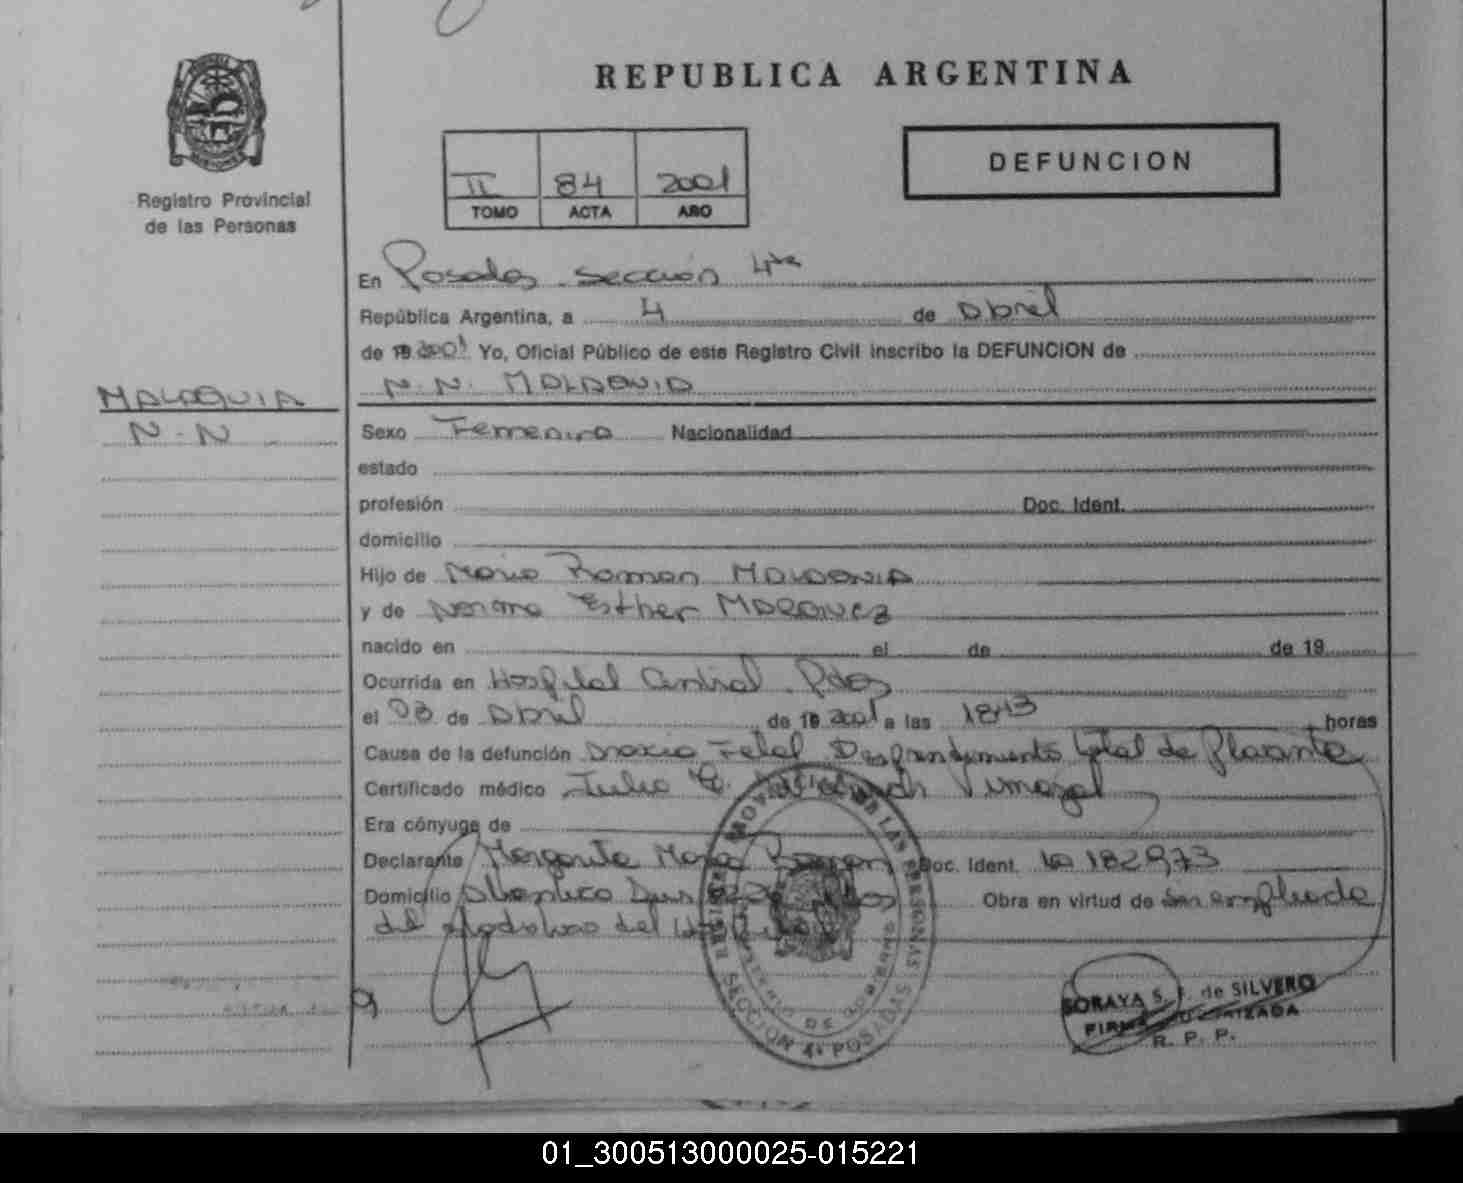 REPUBLICA ARGENTINA
Registro Provincial
de las Personas
II 84 2001
TOMO ACTA AÑO
DEFUNCION
En Posadas Sección 4ta
República Argentina, a 4 de Abril
de 19 2001 Yo, Oficial Público de este Registro Civil inscribo la DEFUNCION de
N.N.
N-N
Sexo Femenino Nacionalidad
estado
profesión Doc. Ident.
domicilio
Hijo de Mario Roman
y de Norma Esther MARQUEZ
nacido en el de de 19
Ocurrida en Hospital Central Pdas
el 03 de Abril de 19 2001 a las 1843 horas
Causa de la defunción Anoxia Fetal Desprendimiento total de Placenta
Certificado médico Julio
Era cónyuge de
Declarante Margarita Doc. Ident. 10182973
Domicilio Obra en virtud de ser empleada
del del
REGISTRO PROVINCIAL DE LAS PERSONAS
MINISTERIO DE GOBIERNO
SECCION 4ª POSADAS
SORAYA S. F. de SILVERO
FIRMA AUTORIZADA
R. P. P.
01_300513000025-015221